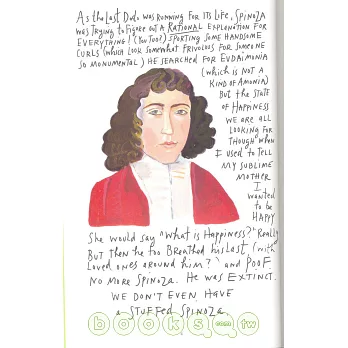 As the Last Dodo was running for its life, Spinoza
was trying to figure out a RATIONAL explanation for
EVERYTHING! (You too?) sporting some handsome
curls (which look somewhat frivolous for someone
so monumental) he searched for Eudaimonia
(which is not a
kind of Amonia)
But the state
of Happiness
we are all
looking for
though when
I used to tell
my sublime
mother
I
wanted
to be
Happy
She would say "What is Happiness?" Really
But then he too Breathed his Last, (with
Loved ones around him?) and Poof.
No more Spinoza. He was EXTINCT.
We don't even have
a stuffed Spinoza.
books.com.tw